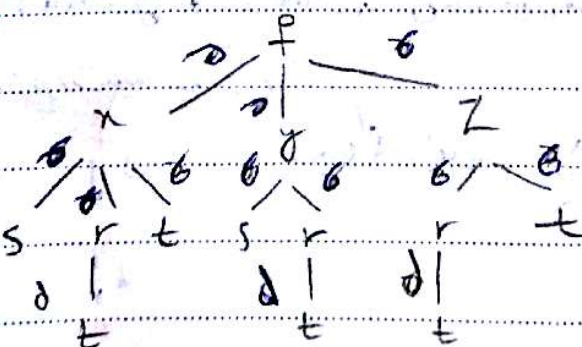 f
∂ ∂ ∂
x y z
∂ ∂ ∂ ∂ ∂ ∂ ∂
s r t s r r t
∂ ∂ ∂
t t t